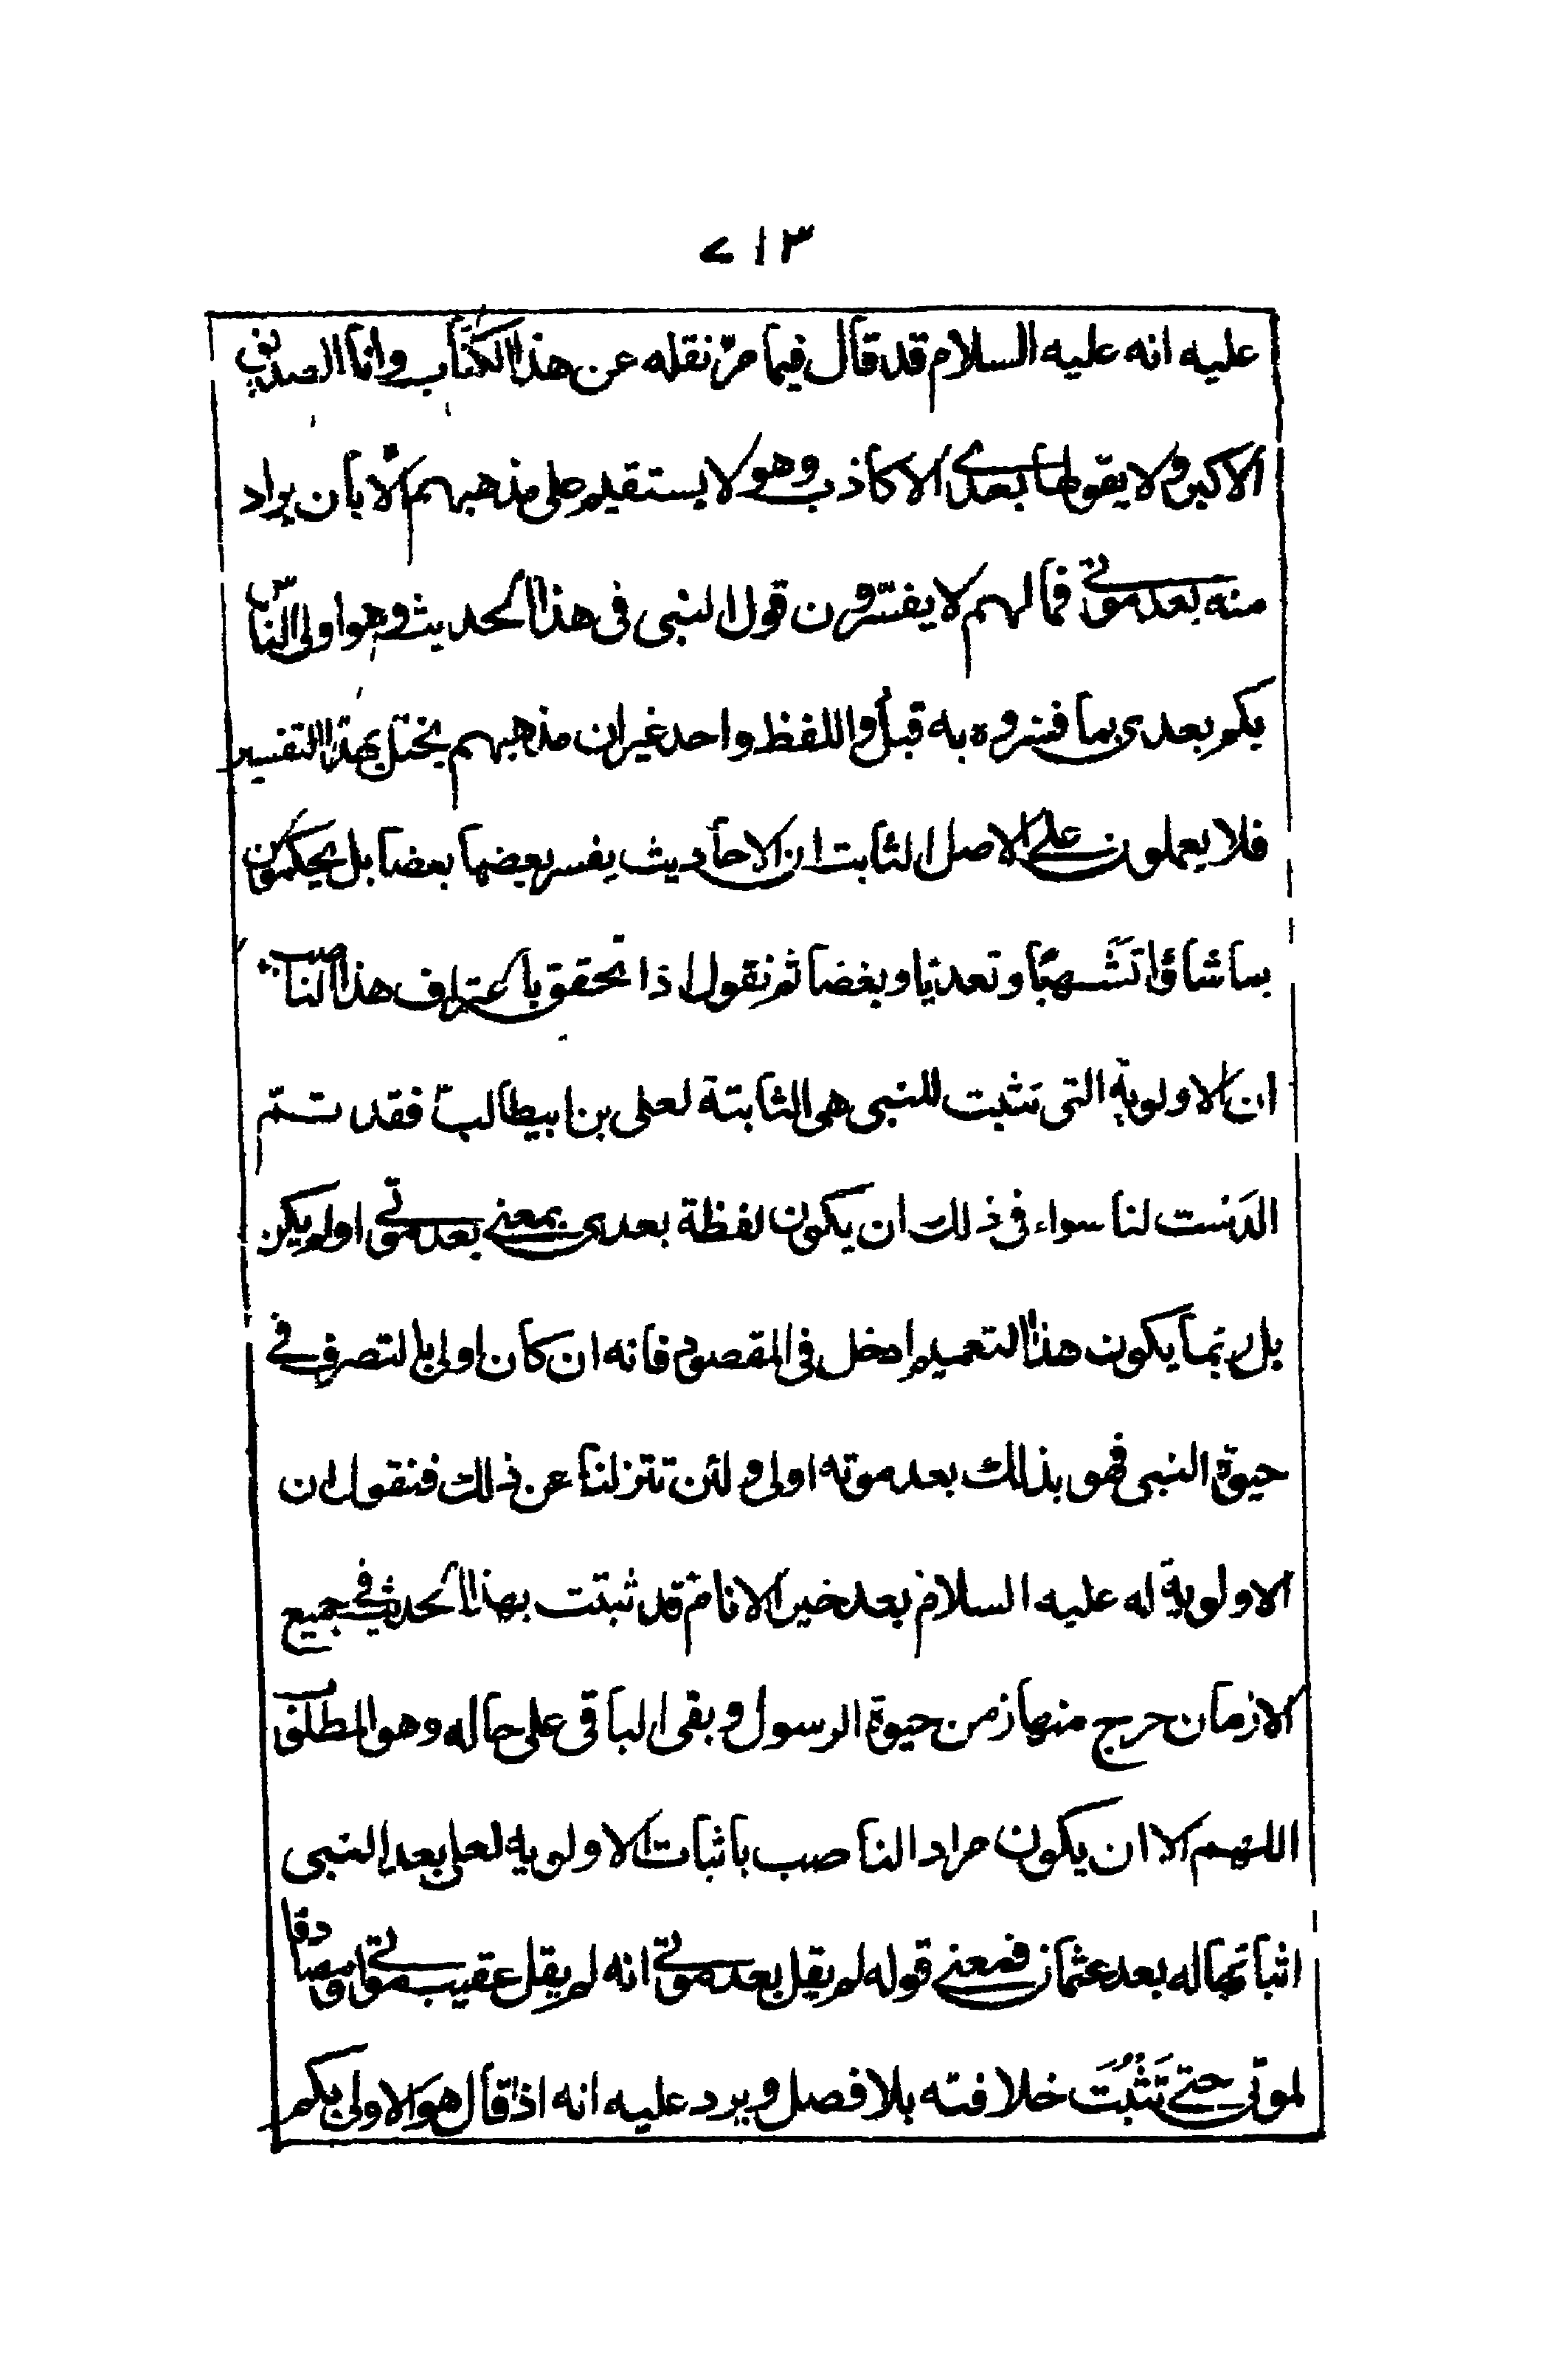 ٧١٣
عليه انه عليه السلام قد قال فيما مرّ نقله عن هذا الكتاب وانا الصديق
الاكبر ولا يقولها بعدي الا كاذب وهو لا يستقيم على مذهبهم الّا بان يراد
منه بعد موتي فما لهم لا يفسّرون قول النبى فى هذا الحديث وهو اولى النّاس
بكم بعدى بما فسروه به قبل واللفظ واحد غير ان مذهبهم يختل بهذا التفسير
فلا يعملون على الاصل الثابت ان الاحاديث يفسر بعضها بعضا بل يحكمون
بما شاؤا تَشَهيًا وتعديا وبغضا ثم نقول اذا تحقق باعتراف هذا النّاصب
ان الاولوية التى تثبت للنبى هى الثابتة لعلى بن ابيطالب فقد تمّ
الدَست لنا سواء فى ذلك ان يكون لفظة بعدى بمعنى بعد موتي اولم يكن
بل ربّما يكون هذا التعميم ادخل فى المقصود فانه ان كان اولى بالتصرف في
حيوة النبى فهو بذلك بعد موته اولى ولئن تنزلنا عن ذلك فنقول ان
الاولوية له عليه السلام بعد خير الانام قد ثبتت بهذا الحديث في جميع
الازمان خرج منها زمن حيوة الرسول وبقى الباقى على حاله وهو المطلوب
اللهم الا ان يكون مراد الناصب باثبات الاولوية لعلى بعد النبى
اثباتها له بعد عثمان فمعنى قوله لم يقل بعد موتي انه لم يقل عقيب موتي او مصادقا
لموتى حتى تَثْبُتَ خلافته بلا فصل ويرد عليه انه اذا قال هوَ الاولى بكم